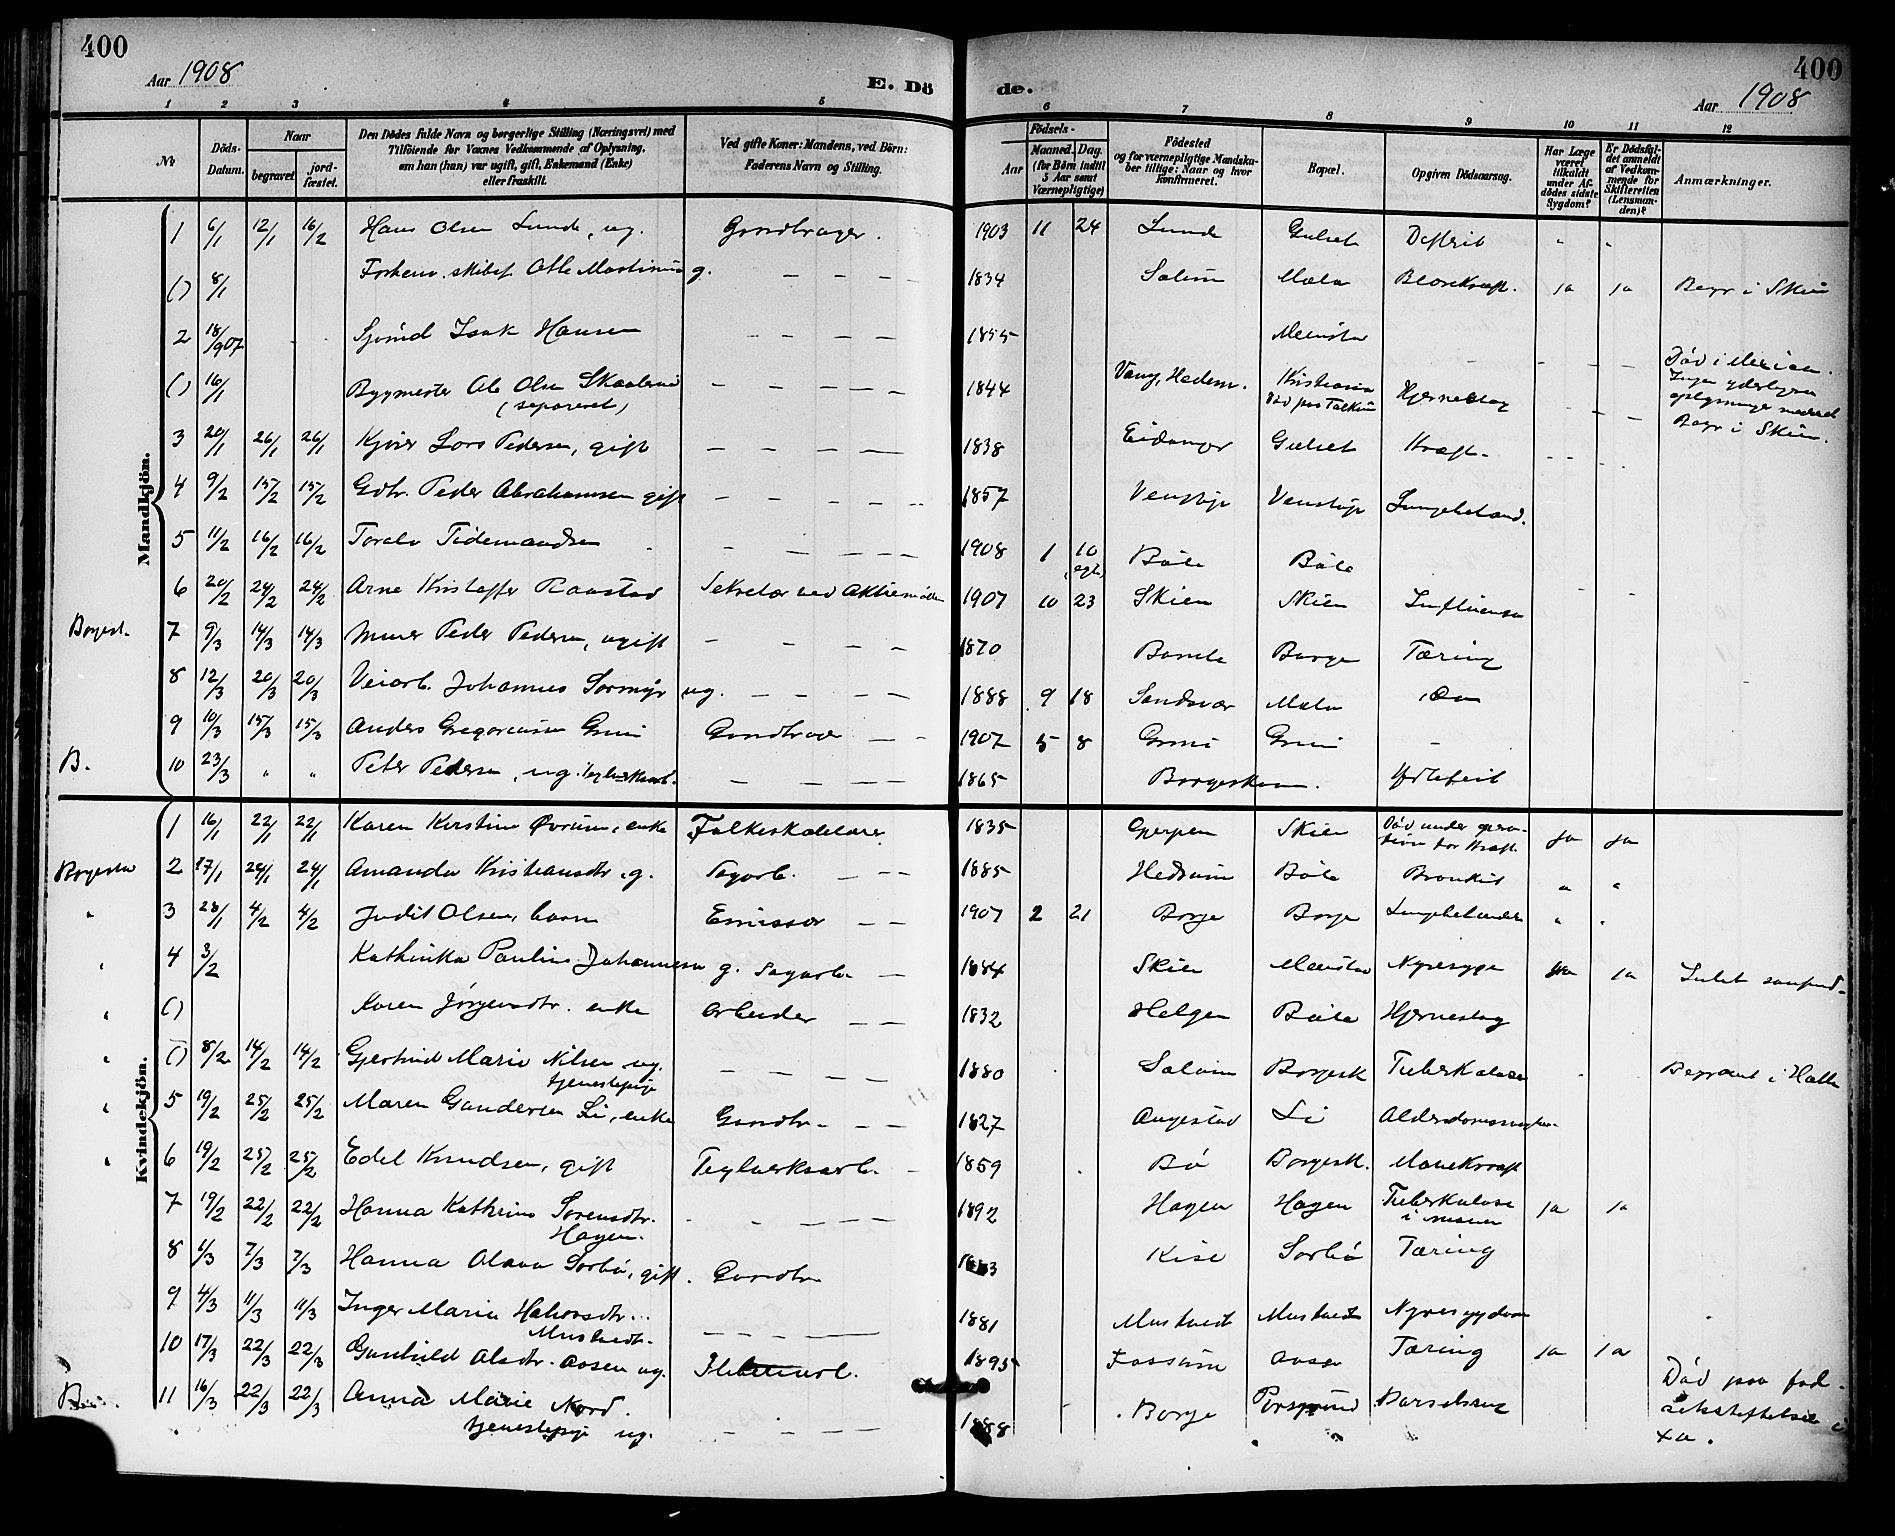 400
Aar 1908
E. Dö
de.
400
Aar 1908
1 2 3 4 5 6 7 8 9 10 11 12
No
Döds-Datum.
Naar
begravet
jordfæstet.
Den Dödes fulde Navn og borgerlige Stilling (Næringsvei) med
Tilföiende for Voxnes Vedkommende af Oplysning,
om han (hun) var ugift, gift, Enkemand (Enke)
eller fraskilt.
Ved gifte Koner: Mandens, ved Börn:
Faderens Navn og Stilling.
Födsels-
Aar
Maaned. Dag.
(for Börn indtil
5 Aar samt
Værnepligtige)
Födested
og for værnepligtige Mandskaber
tillige: Naar og hvor
konfirmeret.
Bopæl.
Opgiven Dödsaarsag.
Har Læge været tilkaldt under Afdödes sidste Sygdom?
Er Dödsfaldet anmeldt af Vedkommende for Skifteretten (Lensmanden)?
Anmærkninger.
Mandkjön.
1 6/1 12/1 16/2 Hans Olsen Lunde, ug. Gaardbruger. 1903 11 24 Lunde Gulset Difterit " "
() 8/1 Forhenv. skibsf. Otto Martinus g. — — — 1834 Solum Mæla Blærekræft. ja ja Begr i Skien
2 18/907 Sjömd Isak Hansen — — — 1855 Menstad Död i Mexico. Ingen yderligere oplysninger meddelt
() 16/1 Bygmester Ole Olsen (separeret) — — — 1844 Vang, Hedem. Kristiania Hjerneslag Begr i Skien.
3 20/1 26/1 26/1 Kjörer Lars Pedersen, gift — — — 1838 Eidanger Gulset Kræft
4 9/2 15/2 15/2 Gdbr. Peder Abrahamsen gift — — — 1857 Venstöp Venstöp Lungebetænd.
5 11/2 16/2 16/2 Toralv Tidemandsen — — — 1908 1 10 Böle Böle
6 20/2 24/2 24/2 Arne Kristoffer Raastad Sekretær ved 1907 10 23 Skien Skien Influensa
Borgest. 7 9/3 14/3 14/3 Murer Peder Pedersen, ugift — — — 1870 Bamle Borge Tæring
8 12/3 20/3 20/3 Veiarb. Johannes Sormyr ug. — — — 1888 9 18 Sandsvær Mæla
9 10/3 15/3 15/3 Anders Gregoriusen Grini Gaardbruger — 1907 5 8 Grini Grini —
B. 10 23/3 " " Peter Pedersen, ug. teglverksarb. — — — 1865 Borgeskau.
Kvindekjön.
1 16/1 22/1 22/1 Karen Kirstine Øvrum, enke Folkeskolelærer 1835 Gjerpen Skien Död under operation for Kræft ja ja
Borgestad 2 17/1 24/1 24/1 Amanda Kristiansdtr. g. Sagarb. — — 1885 Hedrum Böle Bronkit " "
" 3 28/1 4/2 4/2 Judit Olsen, barn Emissær — — 1907 2 21 Borge Borge Lungebetændelse " "
" 4 3/2 Kathinka Pauline Johannesen g. Sagarb. — 1884 Skien Menstad Nyresyge ja ja
" () Karen Jørgensdtr. enke Arbeider — — 1832 Helgen Böle Hjerneslag
" () 8/2 14/2 14/2 Gjertrud Marie Nilsen ug. tjenestepige — — — 1880 Solum Borgesk Tuberkulose Begravet i Hølla
" 5 19/2 25/2 25/2 Maren Gundersen Li, enke Gaardbr. — — 1827 Augestad Li
" 6 19/2 25/2 25/2 Edel Knudsen, gift Teglverksarb. — 1859 Bö Borgesk. Mavekræft
7 19/2 22/2 22/2 Hanna Kathrine Sørensdtr. Hagen. — — — 1892 Hagen Hagen Tuberkulose i ja ja
8 1/3 7/3 7/3 Hanna Olava Sorbö, gift. Gaardbr Kise Sorbö Tæring
9 4/3 11/3 11/3 Inger Marie Halvorsdtr. — — — 1881 Nyresygdom
10 17/3 22/3 22/3 Gunhild Olsdtr. Aasen ug. 1895 Fossum Aasen Tæring ja ja
B 11 16/3 22/3 22/3 Anna Marie Nord. tjenestepige ug. — — — 1888 Borge Porsgrund Barselseng Död paa födselsstiftelsen i Xa.